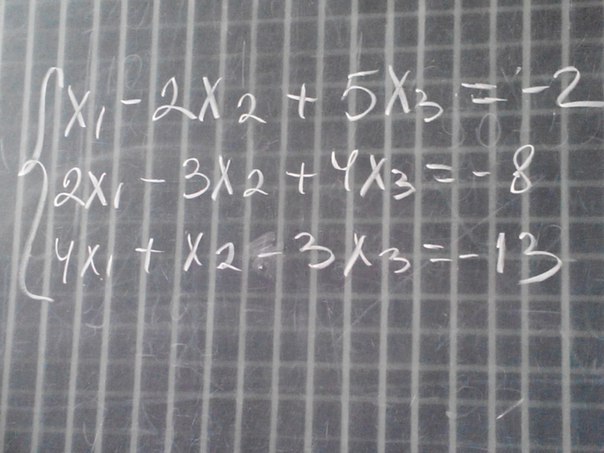 x₁ - 2x₂ + 5x₃ = -2
2x₁ - 3x₂ + 4x₃ = -8
4x₁ + x₂ - 3x₃ = -13